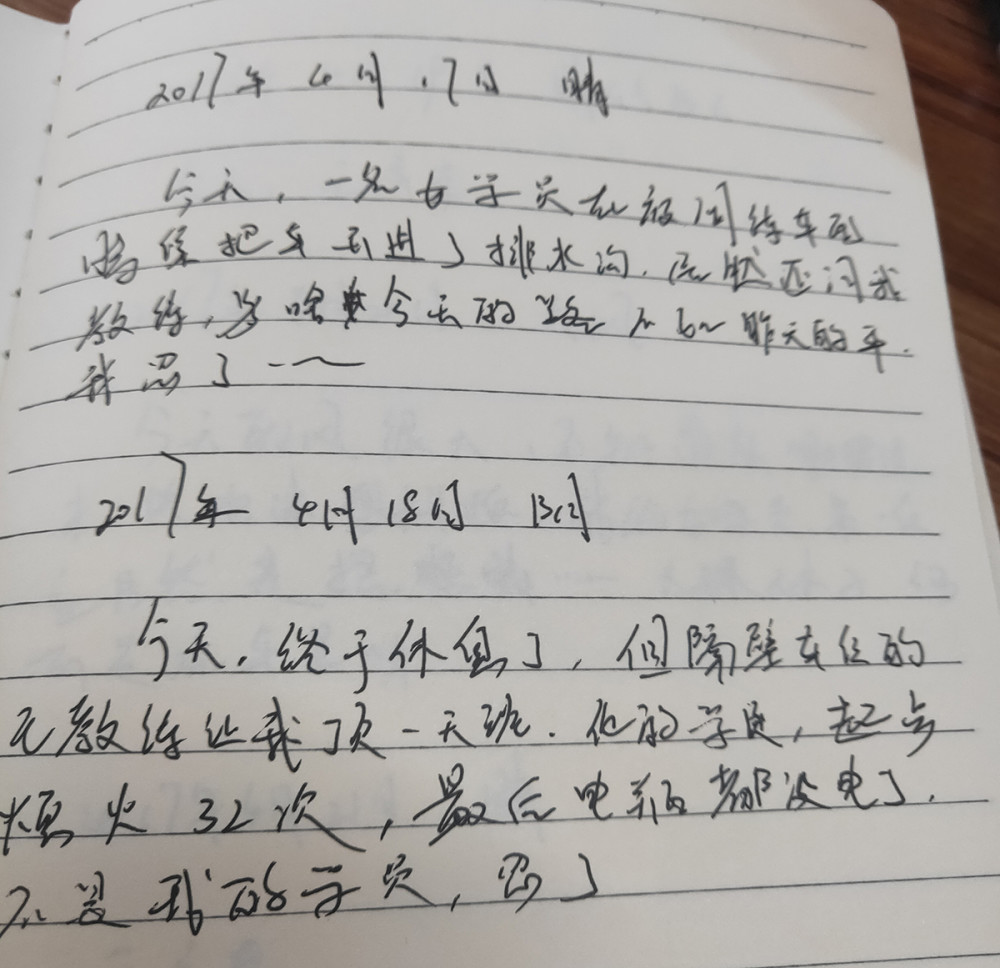 2017年4月17日 晴
今天,一名女学员在夜间练车到
时候把车开进了排水沟,居然还问我
教练,为啥今天的路不如昨天的平.
我忍了……
2017年4月18日 阴
今天,终于休息了,但隔壁车位的
王教练让我顶一天班.他的学员,起步
熄火32次,最后电瓶都没电了.
不是我的学员,忍了